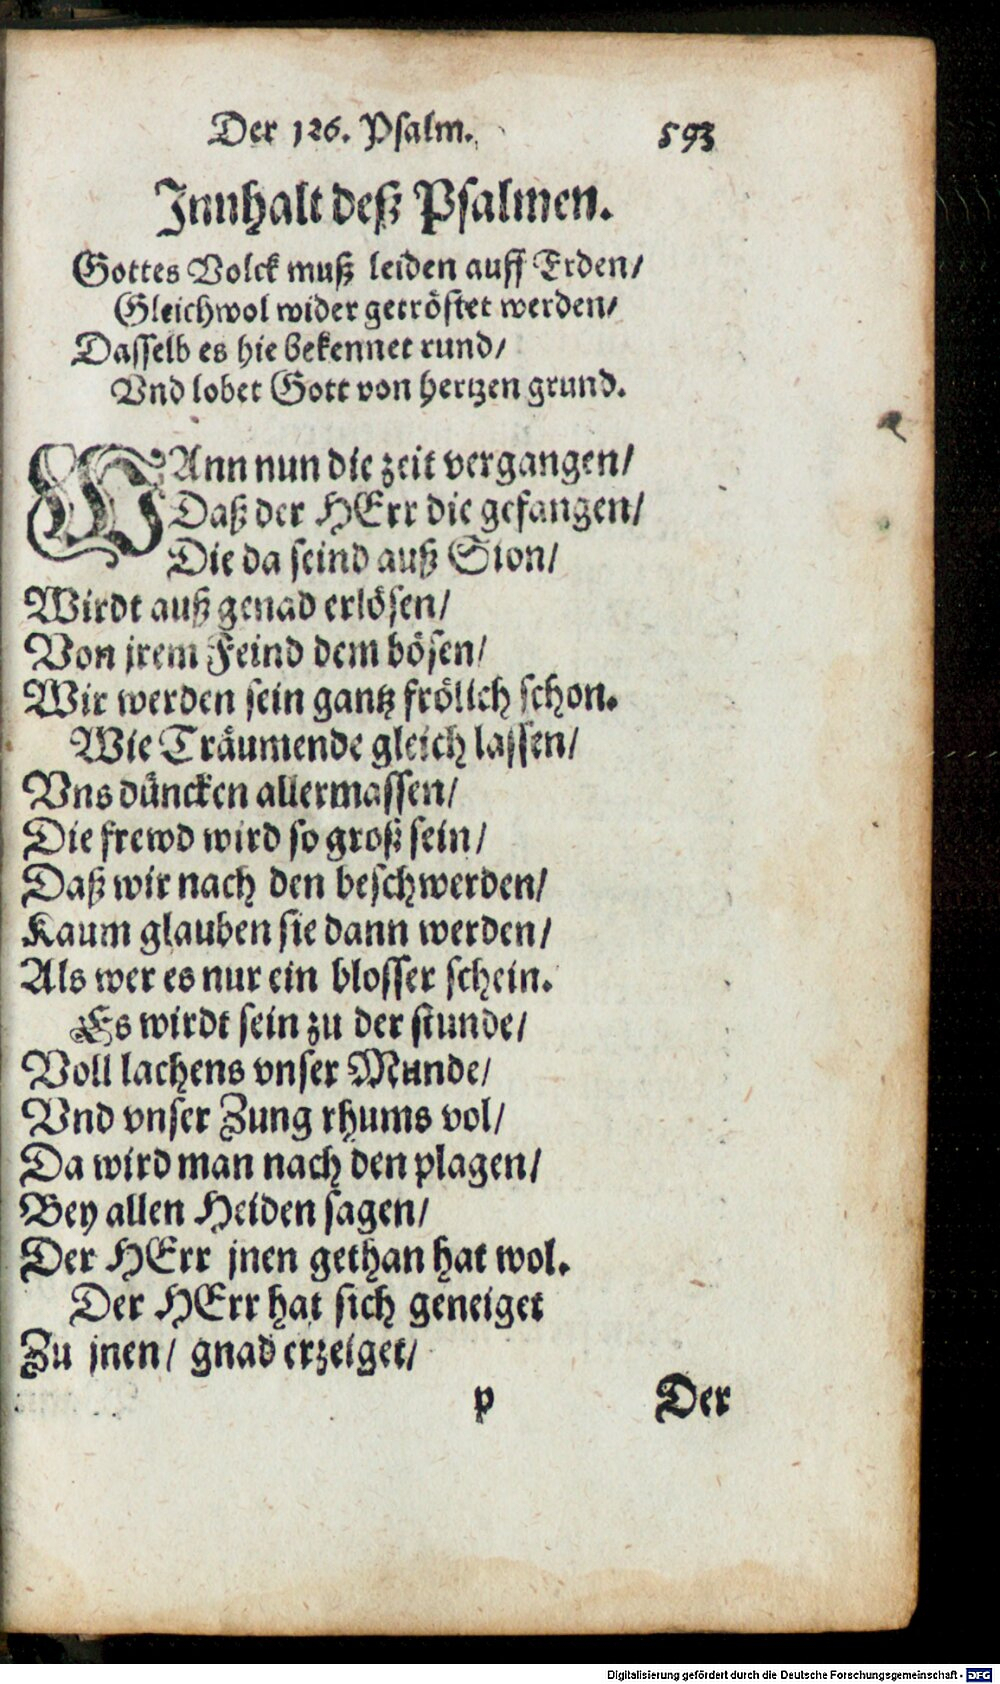 Der 126. Psalm. 593
Innhalt deß Psalmen.
Gottes Volck muß leiden auff Erden/
Gleichwol wider getröstet werden/
Dasselb es hie bekennet rund/
Vnd lobet Gott von hertzen grund.
WAnn nun die zeit vergangen/
Daß der HErr die gefangen/
Die da seind auß Sion/
Wirdt auß genad erlösen/
Von jrem Feind dem bösen/
Wir werden sein gantz frölich schon.
Wie Träumende gleich lassen/
Vns düncken allermassen/
Die frewd wird so groß sein/
Daß wir nach den beschwerden/
Kaum glauben sie dann werden/
Als wer es nur ein blosser schein.
Es wirdt sein zu der stunde/
Voll lachens vnser Munde/
Vnd vnser Zung rhums vol/
Da wird man nach den plagen/
Bey allen Heiden sagen/
Der HErr jnen gethan hat wol.
Der HErr hat sich geneiget
Zu jnen/ gnad erzeiget/
p Der
Digitalisierung gefördert durch die Deutsche Forschungsgemeinschaft - DFG